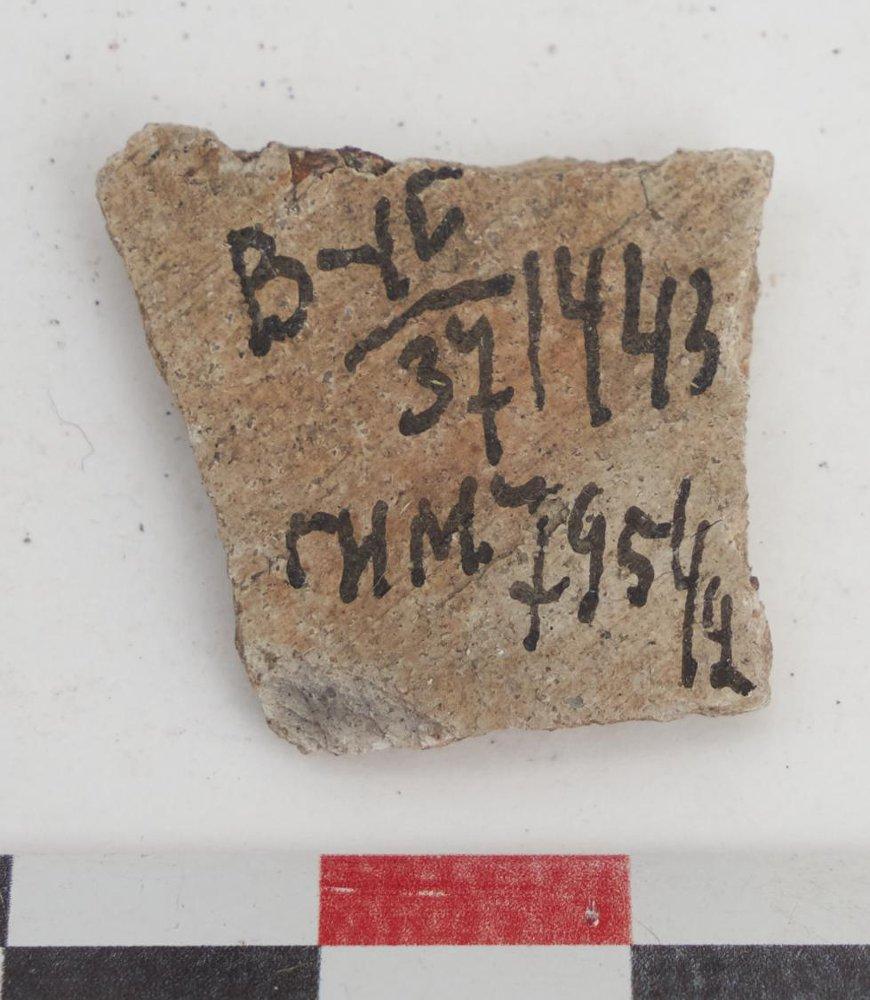 В-ЧС/37 1443
ГИМ 7954/2